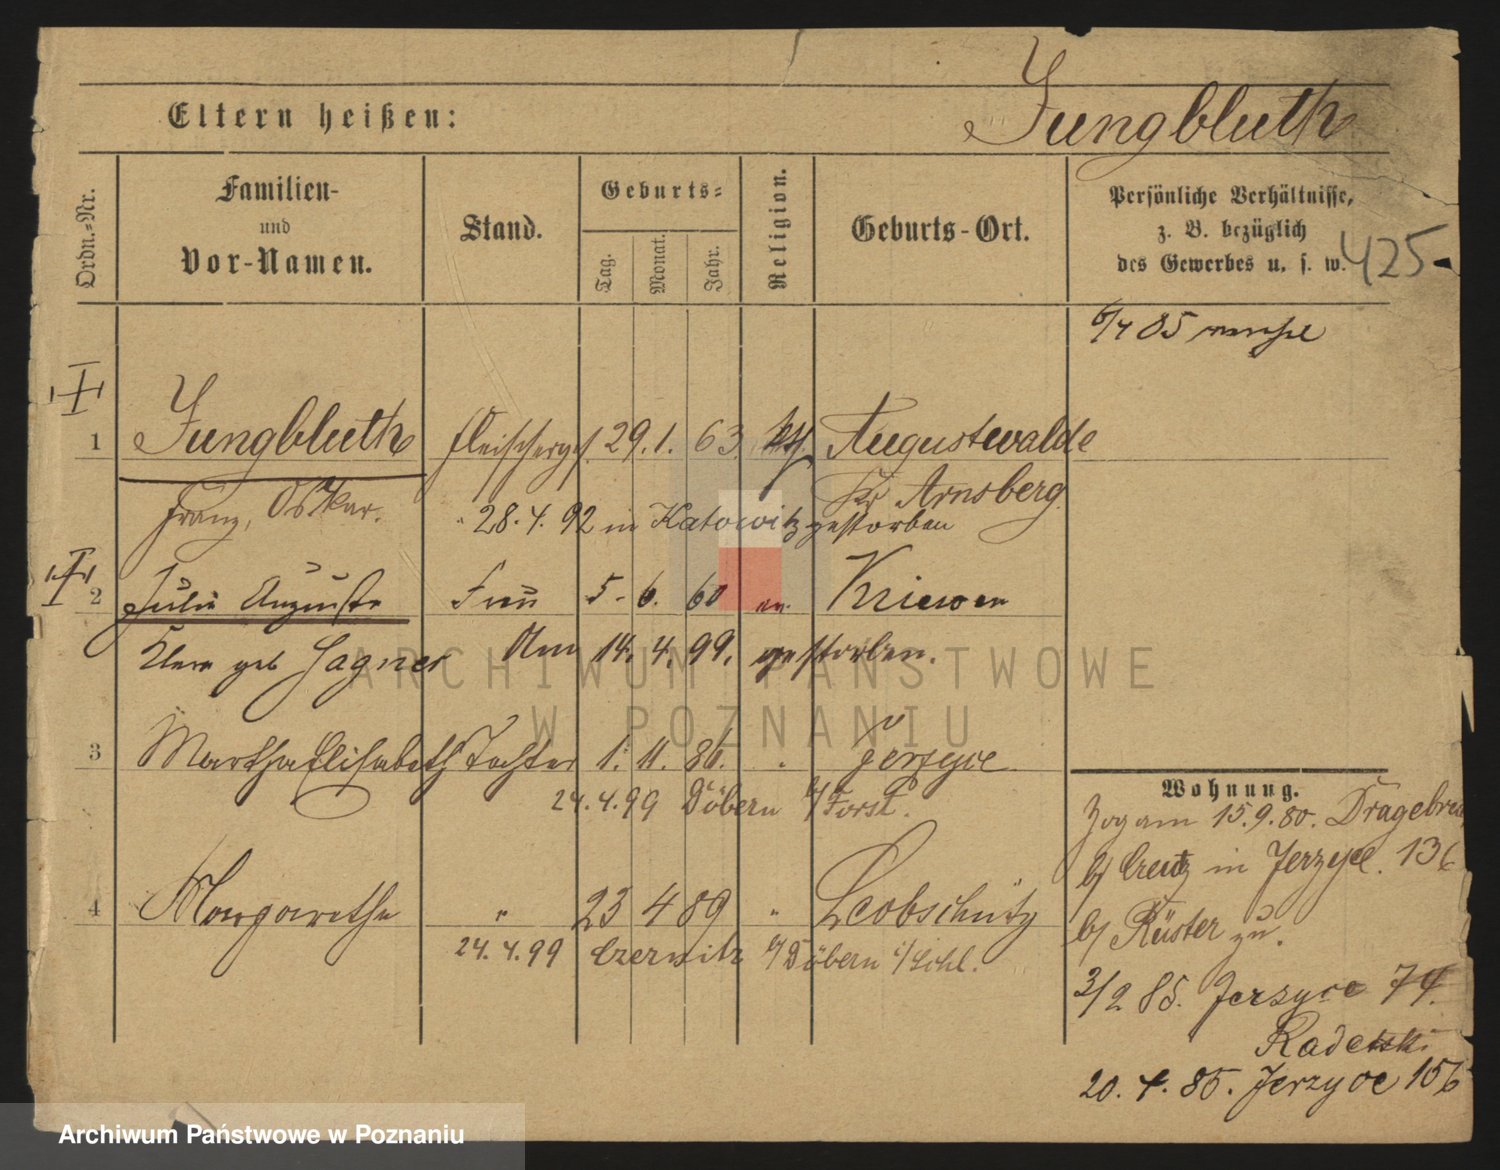 Eltern heißen:
Jungbluth
Ordn.-Nr.
Familien-
und
Vor-Namen.
Stand.
Geburts-
Tag.
Monat.
Jahr.
Religion.
Geburts-Ort.
Persönliche Verhältnisse,
z. B. bezüglich
des Gewerbes u. s. w.
425
6/4 85
1 Jungbluth Fleischerges. 29. 1. 63 Augustwalde
Franz, Oskar. Kr Arnsberg.
28. 4. 92 in Katowitz gestorben
2 Julie Auguste Frau 5. 6. 60 ev. Kriewen
geb Hagner Am 14. 4. 99. gestorben.
3 Martha Elisabeth Tochter 1. 11. 86. " Jerzyce
24. 4. 99 Döbern b/ Forst.
4 Margarethe " 23 4 89 " Leobschütz
24. 4. 99 Czernitz b/ Döbern i/ Schl.
Wohnung.
Zog am 15. 9. 80.
b/ Creutz in Jerzyce. 136
b/ Rüster zu.
3/2 85. Jerzyce 74.
Radetski
20. 4. 85. Jerzyce 156
ARCHIWUM PAŃSTWOWE
W POZNANIU
Archiwum Państwowe w Poznaniu